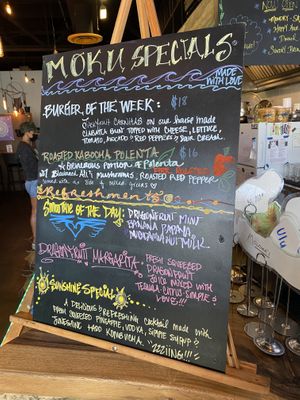 MOKU SPECIALS
MADE
WITH LOVE
BURGER OF THE WEEK: $18
Jackfruit Carnitas on our house made
ciabatta bun topped with cheese, lettuce,
tomato, avocado & red peppers & sour cream.
ROASTED KABOCHA POLENTA $16
Generous portion of Polenta
w/ Mushrooms, Roasted Red Pepper
served with a side greens
Refreshments
SMOOTHIE OF THE DAY: DRAGONFRUIT MINT
BANANA PAPAYA
MACADAMIA NUT MILK
DRAGONFRUIT MARGARITA: FRESH SQUEEZED
DRAGONFRUIT
JUICE MIXED WITH
TEQUILA CITRUS SIMPLE &
LOVE!!!
SUNSHINE SPECIAL
A DELICIOUS & REFRESHING COCKTAIL MADE WITH
FRESH SQUEEZED PINEAPPLE, VODKA, SIMPLE SYRUP &
HARD KOMBUCHA.